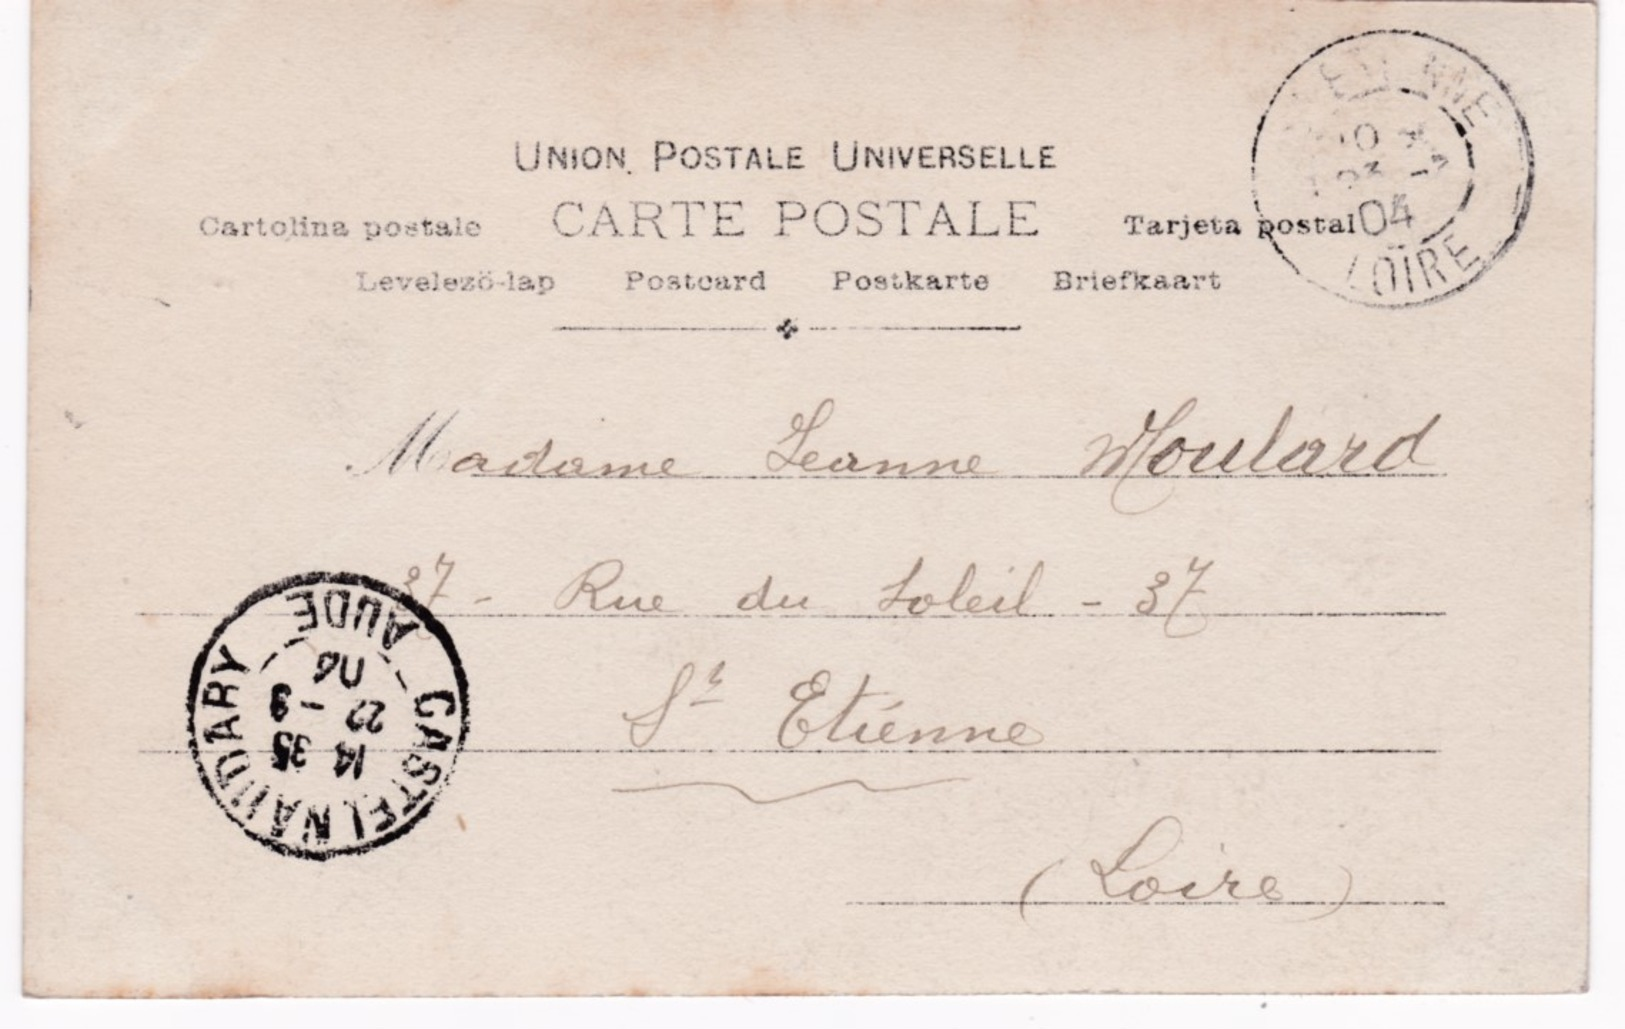 UNION POSTALE UNIVERSELLE
Cartolina postale CARTE POSTALE Tarjeta postal
Levelezö-lap Postcard Postkarte Briefkaart
ETIENNE
04
LOIRE
Madame Jeanne Moulard
37 - Rue du Soleil - 37
St Etienne
(Loire)
CASTELNAUDARY
14 35
22 - 9
04
AUDE